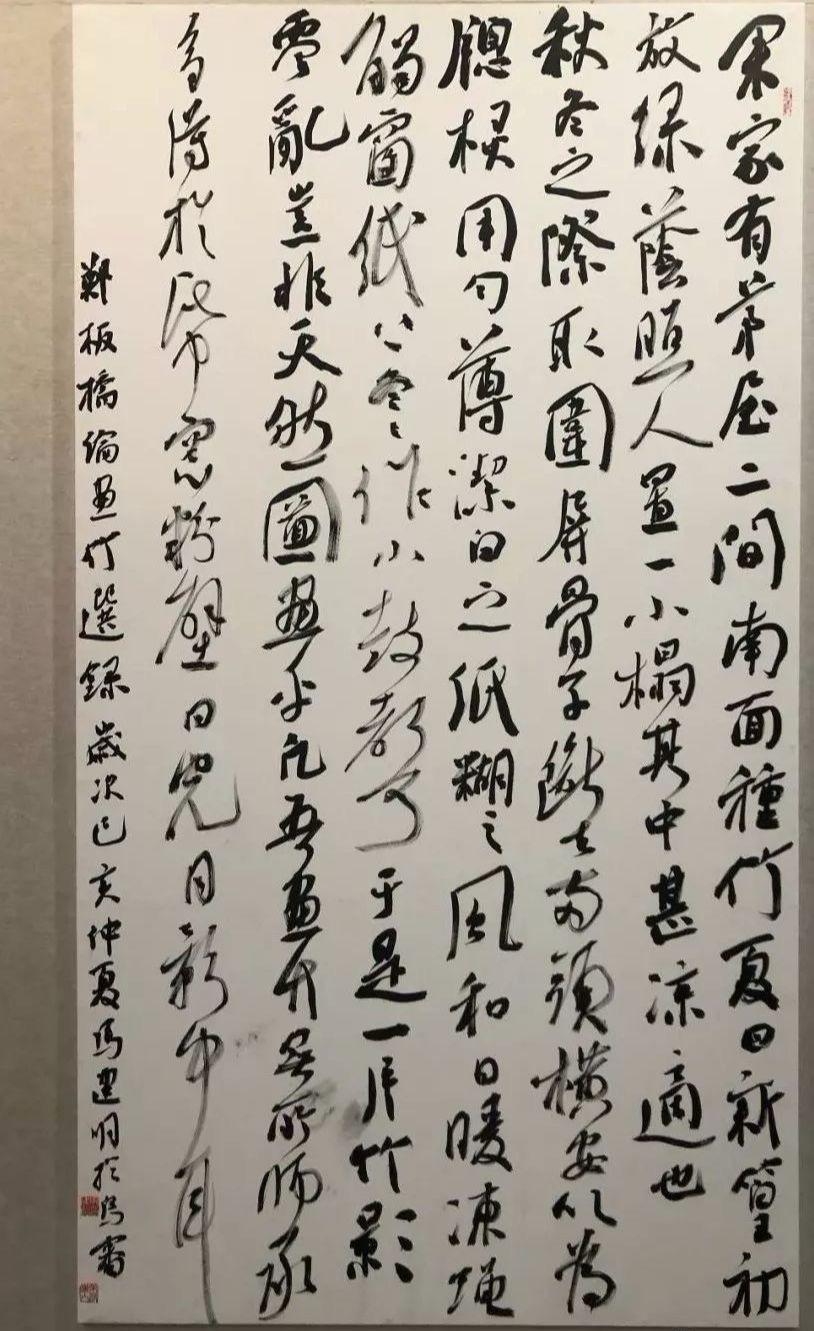 余家有茅屋二間南面種竹夏日新篁初
放緑蔭照人置一小榻其中甚凉適也
秋冬之際取圍屏骨子斷去两頭橫安以為
窓棂用匀薄潔白之紙糊之風和日暖凍蝇
觸窗紙上冬冬作小鼓聲于是一片竹影
零亂豈非天然一圖畫乎凡吾畫竹無所師承
多得於紙窓粉壁日光月影中耳
鄭板橋論畫竹選録歲次己亥仲夏馬建明於烏審